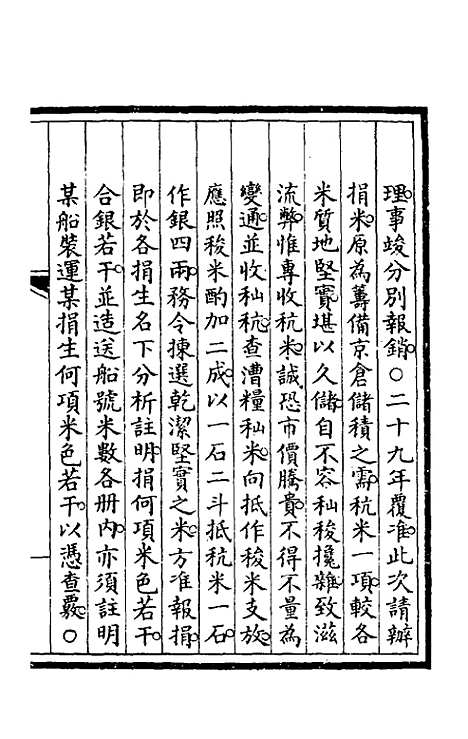 理事竣分別報銷○二十九年覆准此次請辦
捐米原為籌備京倉儲積之需秔米一項較各
米質地堅實堪以久儲自不容秈稄攙雜致滋
流弊惟專收秔米誠恐市價騰貴不得不量為
變通並收秈秔查漕糧秈米向抵作稄米支放
應照稄米酌加二成以一石二斗抵秔米一石
作銀四兩務令揀選乾潔堅實之米方准報捐
即於各捐生名下分析註明捐何項米色若干
合銀若干並造送船號米數各册內亦須註明
某船裝運某捐生何項米色若干以憑查覈○